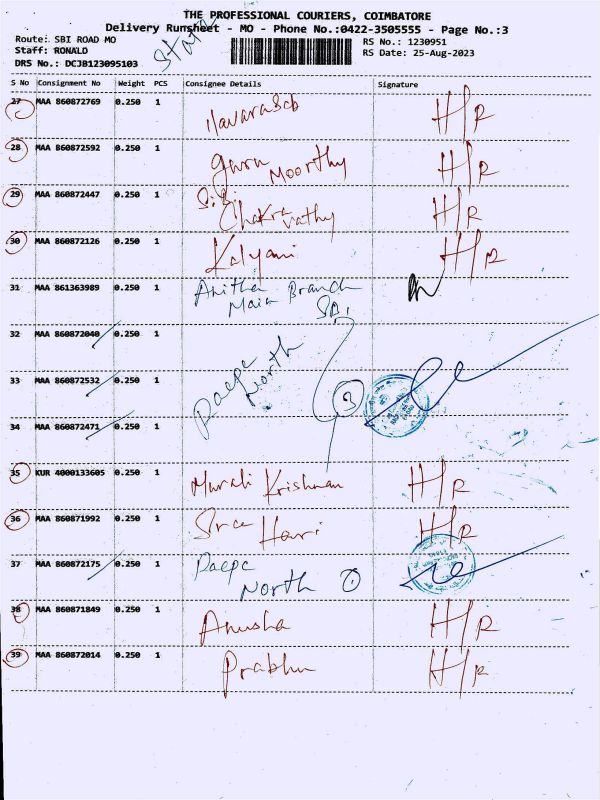 THE PROFESSIONAL COURIERS, COIMBATORE
Delivery Runsheet - MO - Phone No.:0422-3505555 - Page No.:3
Route: SBI ROAD MO
RS No.: 1230951
Staff: RONALD
RS Date: 25-Aug-2023
DRS No.: DCJB123095103
State
S No Consignment No Weight PCS Consignee Details Signature
27 MAA 860872769 0.250 1 H/R
28 MAA 860872592 0.250 1 Guru Moorthy H/R
29 MAA 860872447 0.250 1 S.B. Chakra vathy H/R
30 MAA 860872126 0.250 1 Kalyani H/R
31 MAA 861363989 0.250 1 Anitha Main Branch SBI
32 MAA 860872040 0.250 1
33 MAA 860872532 0.250 1 North 3
34 MAA 860872471 0.250 1
35 KUR 4000133605 0.250 1 Murali Krishnan H/R
36 MAA 860871992 0.250 1 Sree Hari H/R
37 MAA 860872175 0.250 1 North 1
38 MAA 860871849 0.250 1 Anusha H/R
39 MAA 860872014 0.250 1 Prabhu H/R